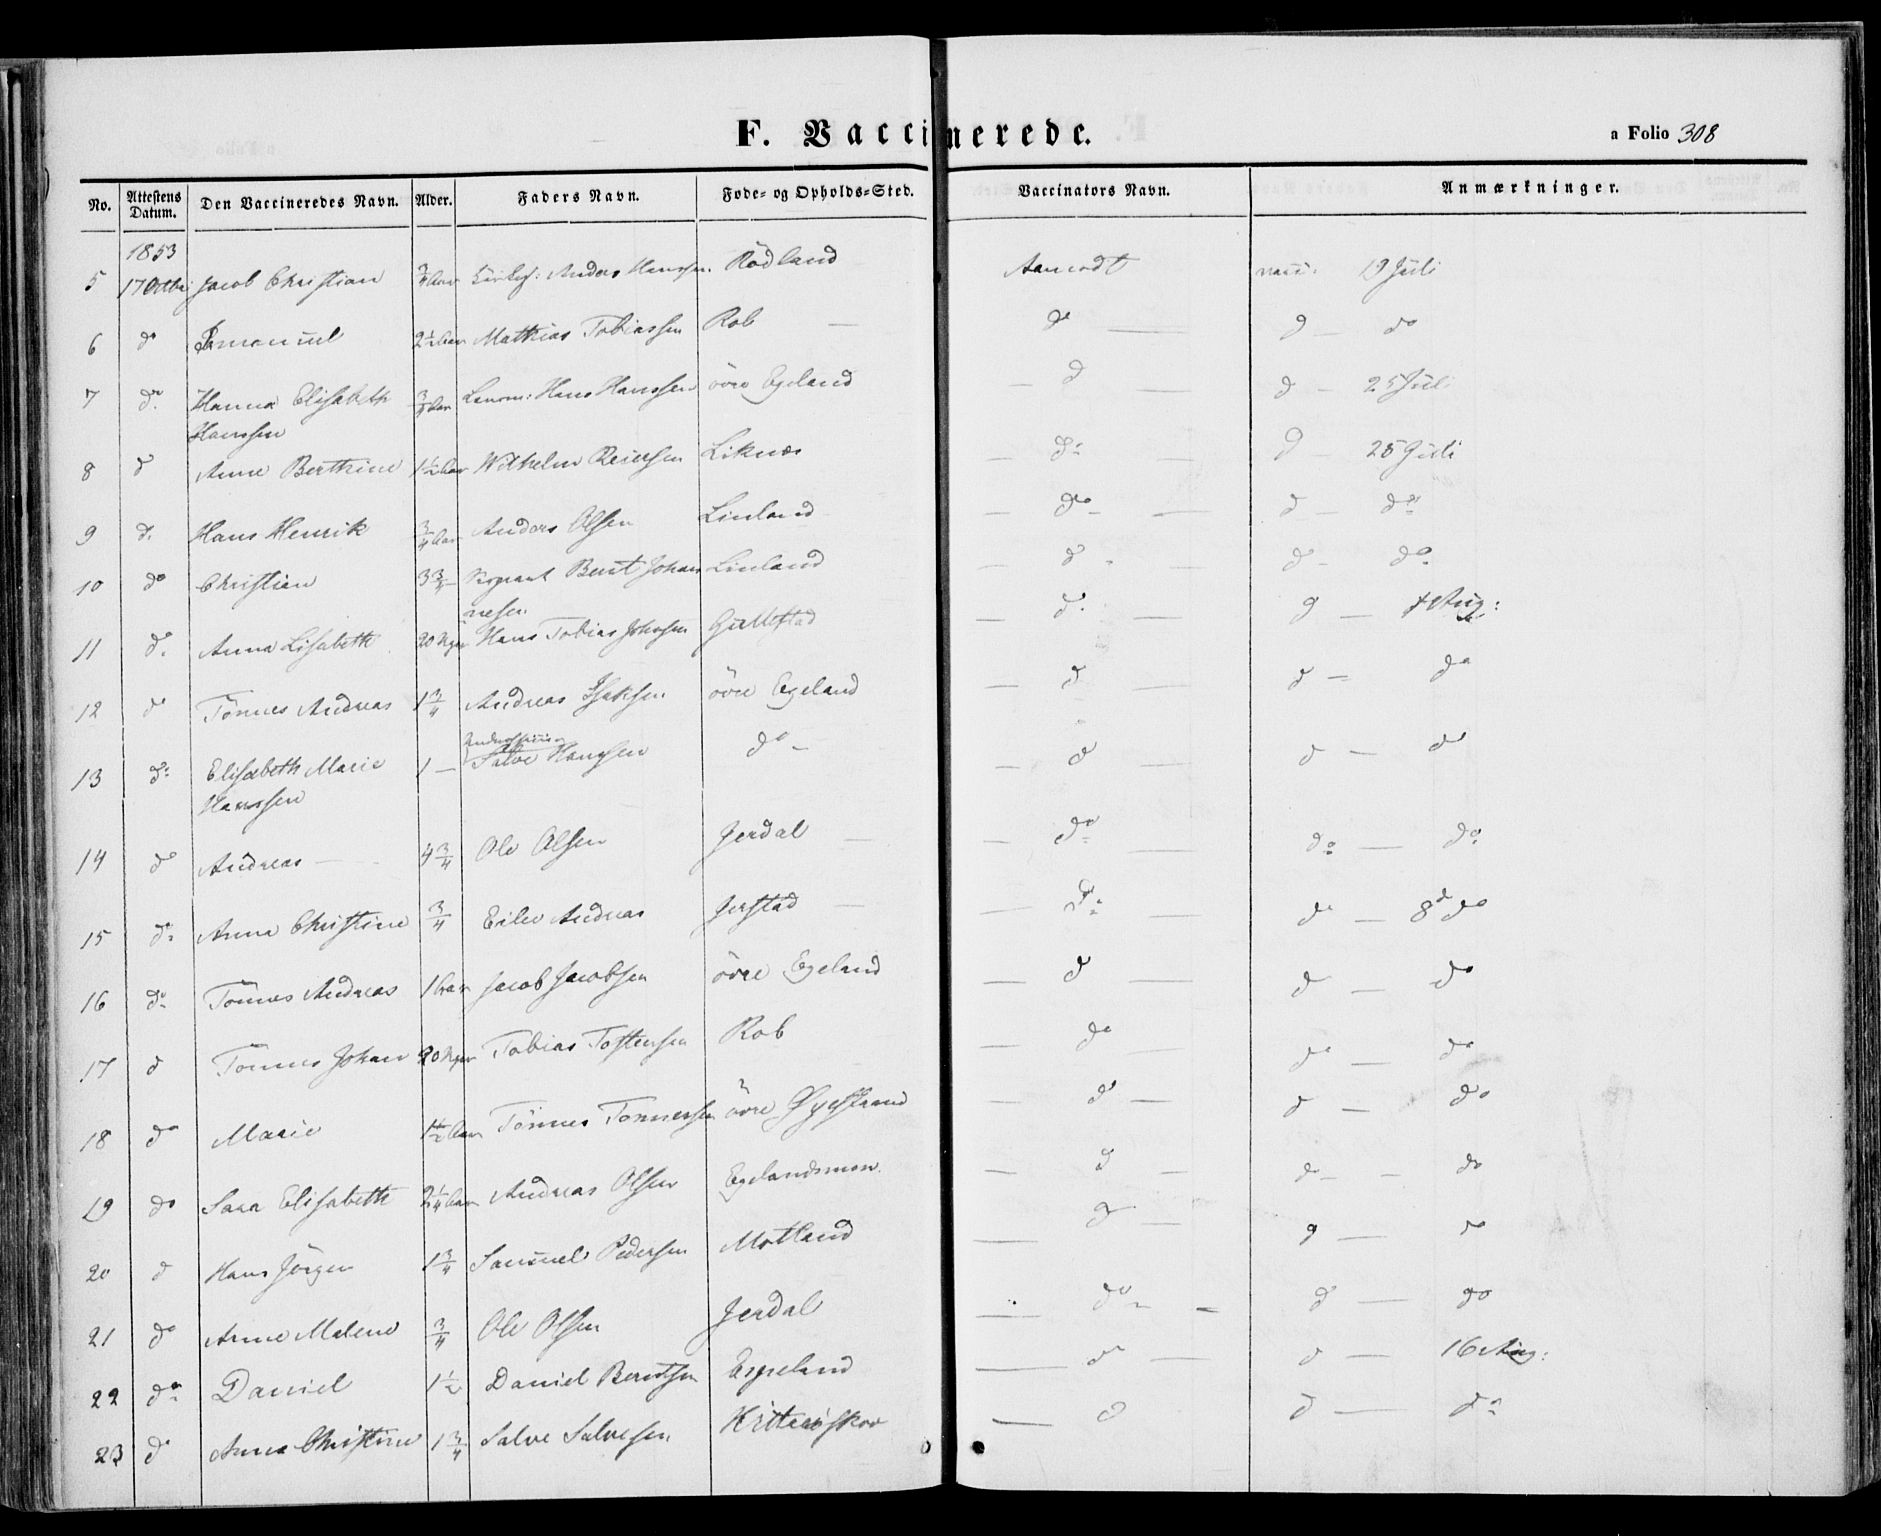 F. Vaccinerede.
a Folio 308
No. Attestens Datum. Den Vaccineredes Navn. Alder. Faders Navn. Føde- og Opholds-Sted. Vaccinators Navn. Anmærkninger.
1853
5 17 Octbr Jacob Christian 3/4 Aar Anders Hanssen. Rødland Aamodt vacc: 19 Juli
6 do Emanuel 2 1/2 Aar Mathias Tobiassen Rob — do — d — do
7 do Hanna Elisabeth 3/4 Aar Hans Hanssen övre Egeland — d — d — 25 Juli
Hanssen
8 d Anne Berthine 1 1/2 Aar Wilhelm Reiersen Liknes — do — d 25 Juli
9 d. Hans Henrik 3/4 Aar Anders Olsen Linland — do — d — do
10 do Christian 3 3/4 — Berut Johan Linland — d — d — do
nesen
11 d. Anna Lisabeth 20 Uger Hans Tobias Johnsen Gullestad — d. — d — Aug:
12 do Tönnes Andreas 1 3/4 Andreas Isaksen övre Egeland — d — d — do
13 do Elisabeth Marie 1 — Salve Hanssen do — — d — d — do
Hanssen
14 do Andreas — 4 3/4 Ole Olsen Jerdal — — do — do — do
15 do Anna Christine 3/4 Eilev Andreas Jerstad — — do — do — 8de do
16 do Tönnes Andreas 1 Aar Jacob Jacobsen övre Egeland — d — do — do
17 d Tönnes Johan 20 Uger Tobias Tostensen Rob — do — do — do
18 do Marie 1 1/2 Aar Tönnes Tönnessen övre Øyestrand — do — d — do
19 do Sara Elisabeth 2 1/4 Aar Andreas Olsen Egelandsmon. — d — do — do
20 d Hans Jörgen 1 3/4 Samuel Pedersen Motland — d — d — do
21 do Anne Malene 3/4 Ole Olsen Jerdal — do — d — do
22 do Daniel 1 1/2 Daniel Berntsen Espeland — do — d — 16 Aug:
23 do Anna Christine 1 3/4 Salve Salvesen — d — d — do